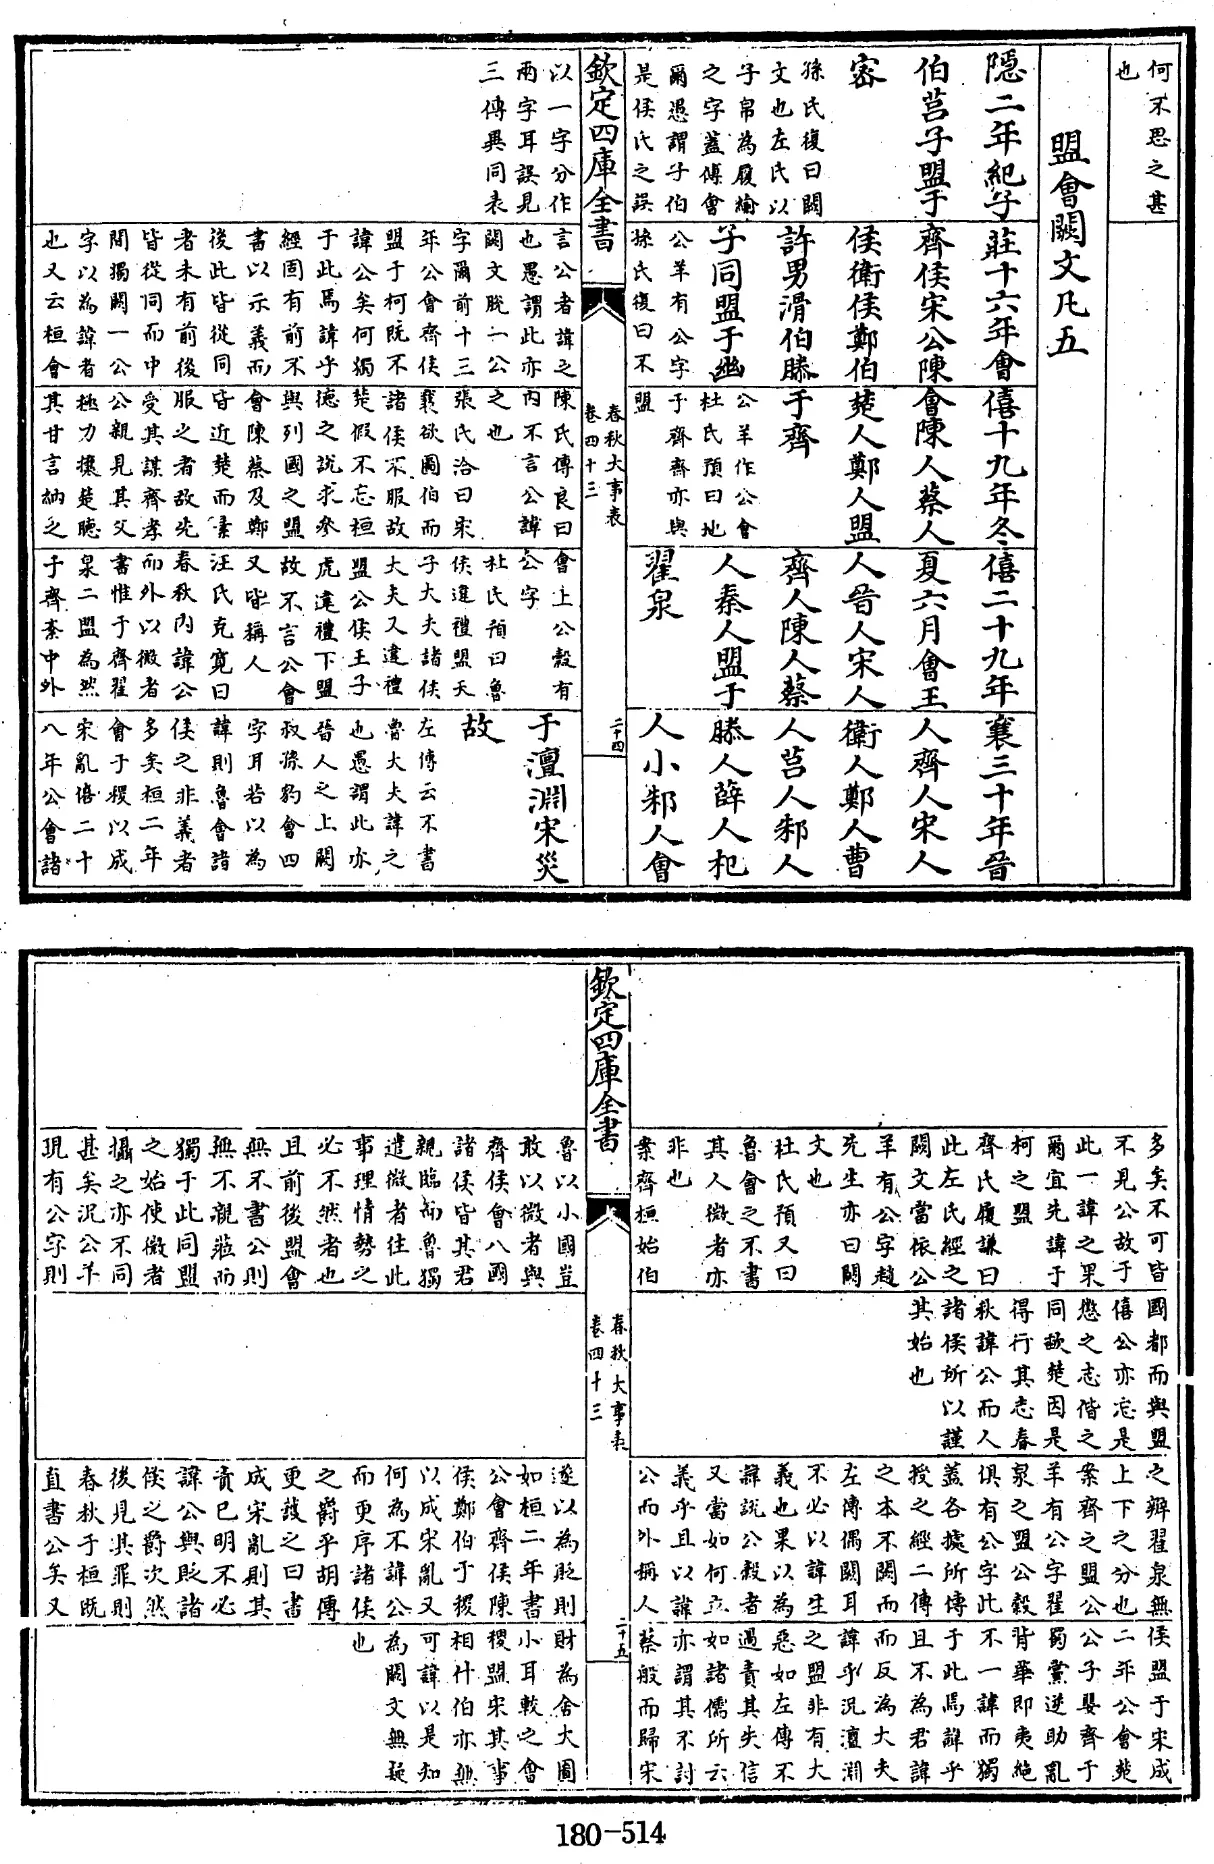 何不思之甚
也
盟會闕文凡五
隱二年紀子
伯莒子盟于
密
孫氏復曰闕
文也左氏以
子帛為履緰
之字蓋傅會
爾愚謂子伯
是侯氏之誤
莊十六年會
齊侯宋公陳
侯衛侯鄭伯
許男滑伯滕
子同盟于幽
公羊有公字
孫氏復曰不
僖十九年冬
會陳人蔡人
楚人鄭人盟
于齊
公羊作公會
杜氏預曰地
于齊齊亦與
盟
僖二十九年
夏六月會王
人晉人宋人
齊人陳人蔡
人秦人盟于
翟泉
襄三十年晉
人齊人宋人
衛人鄭人曹
人莒人邾人
滕人薛人杞
人小邾人會
欽定四庫全書
春秋大事表
卷四十三
二十四
以一字分作
兩字耳誤見
三傳異同表
言公者諱之
也愚謂此亦
闕文脫一公
字爾前十三
年公會齊侯
盟于柯既不
諱公矣何獨
于此焉諱乎
經固有前不
書以示義而
後此皆從同
者未有前後
皆從同而中
間獨闕一公
字以為諱者
也又云桓會
陳氏傅良曰
內不言公諱
之也
張氏洽曰宋
襄欲圖伯而
諸侯不服故
楚假不忘桓
德之說求參
與列國之盟
會陳蔡及鄭
皆近楚而素
服之者故先
受其謀齊孝
公親見其父
極力攘楚聽
其甘言納之
會上公穀有
公字
杜氏預曰魯
侯違禮盟天
子大夫諸侯
大夫又違禮
盟公侯王子
虎違禮下盟
故不言公會
又皆稱人
汪氏克寬曰
春秋內諱公
而外以微者
書惟于齊翟
泉二盟為然
于齊紊中外
于澶淵宋災
故
左傳云不書
魯大夫諱之
也愚謂此亦
晉人之上闕
叔孫豹會四
字耳若以為
諱則魯會諸
侯之非義者
多矣桓二年
會于稷以成
宋亂僖二十
八年公會諸
多矣不可皆
不見公故于
此一諱之果
爾宜先諱于
柯之盟
齊氏履謙曰
此左氏經之
闕文當依公
羊有公字趙
先生亦曰闕
文也
杜氏預又曰
魯會之不書
其人微者亦
非也
案齊桓始伯
國都而與盟
僖公亦忘是
懲之志偕之
同歃楚因是
得行其志春
秋諱公而人
諸侯所以謹
其始也
之辨翟泉無
上下之分也
案齊之盟公
羊有公字翟
泉之盟公穀
俱有公字此
蓋各據所傳
授之經二傳
之本不闕而
左傳偶闕耳
不必以諱生
義也果以為
諱說公穀者
又當如何立
義乎且以諱
公而外稱人
侯盟于宋成
二年公會楚
公子嬰齊于
蜀黨逆助亂
背華即夷絕
不一諱而獨
于此焉諱乎
且不為君諱
而反為大夫
諱乎況澶淵
之盟非有大
惡如左傳不
過責其失信
如諸儒所云
亦謂其不討
蔡般而歸宋
欽定四庫全書
春秋大事表
卷四十三
二十五
魯以小國豈
敢以微者與
齊侯會八國
諸侯皆其君
親臨而魯獨
遣微者往此
事理情勢之
必不然者也
且前後盟會
無不書公則
無不親蒞而
獨于此同盟
之始使微者
攝之亦不同
甚矣況公羊
現有公字則
遂以為貶則
如桓二年書
公會齊侯陳
侯鄭伯于稷
以成宋亂又
何為不諱公
而更序諸侯
之爵乎胡傳
更鼓之曰書
成宋亂則其
責已明不必
諱公與貶諸
侯之爵次然
後見其罪則
春秋于桓既
直書公矣又
財為舍大圖
小耳較之會
稷盟宋其事
相什伯亦無
可諱以是知
為闕文無疑
也
180-514